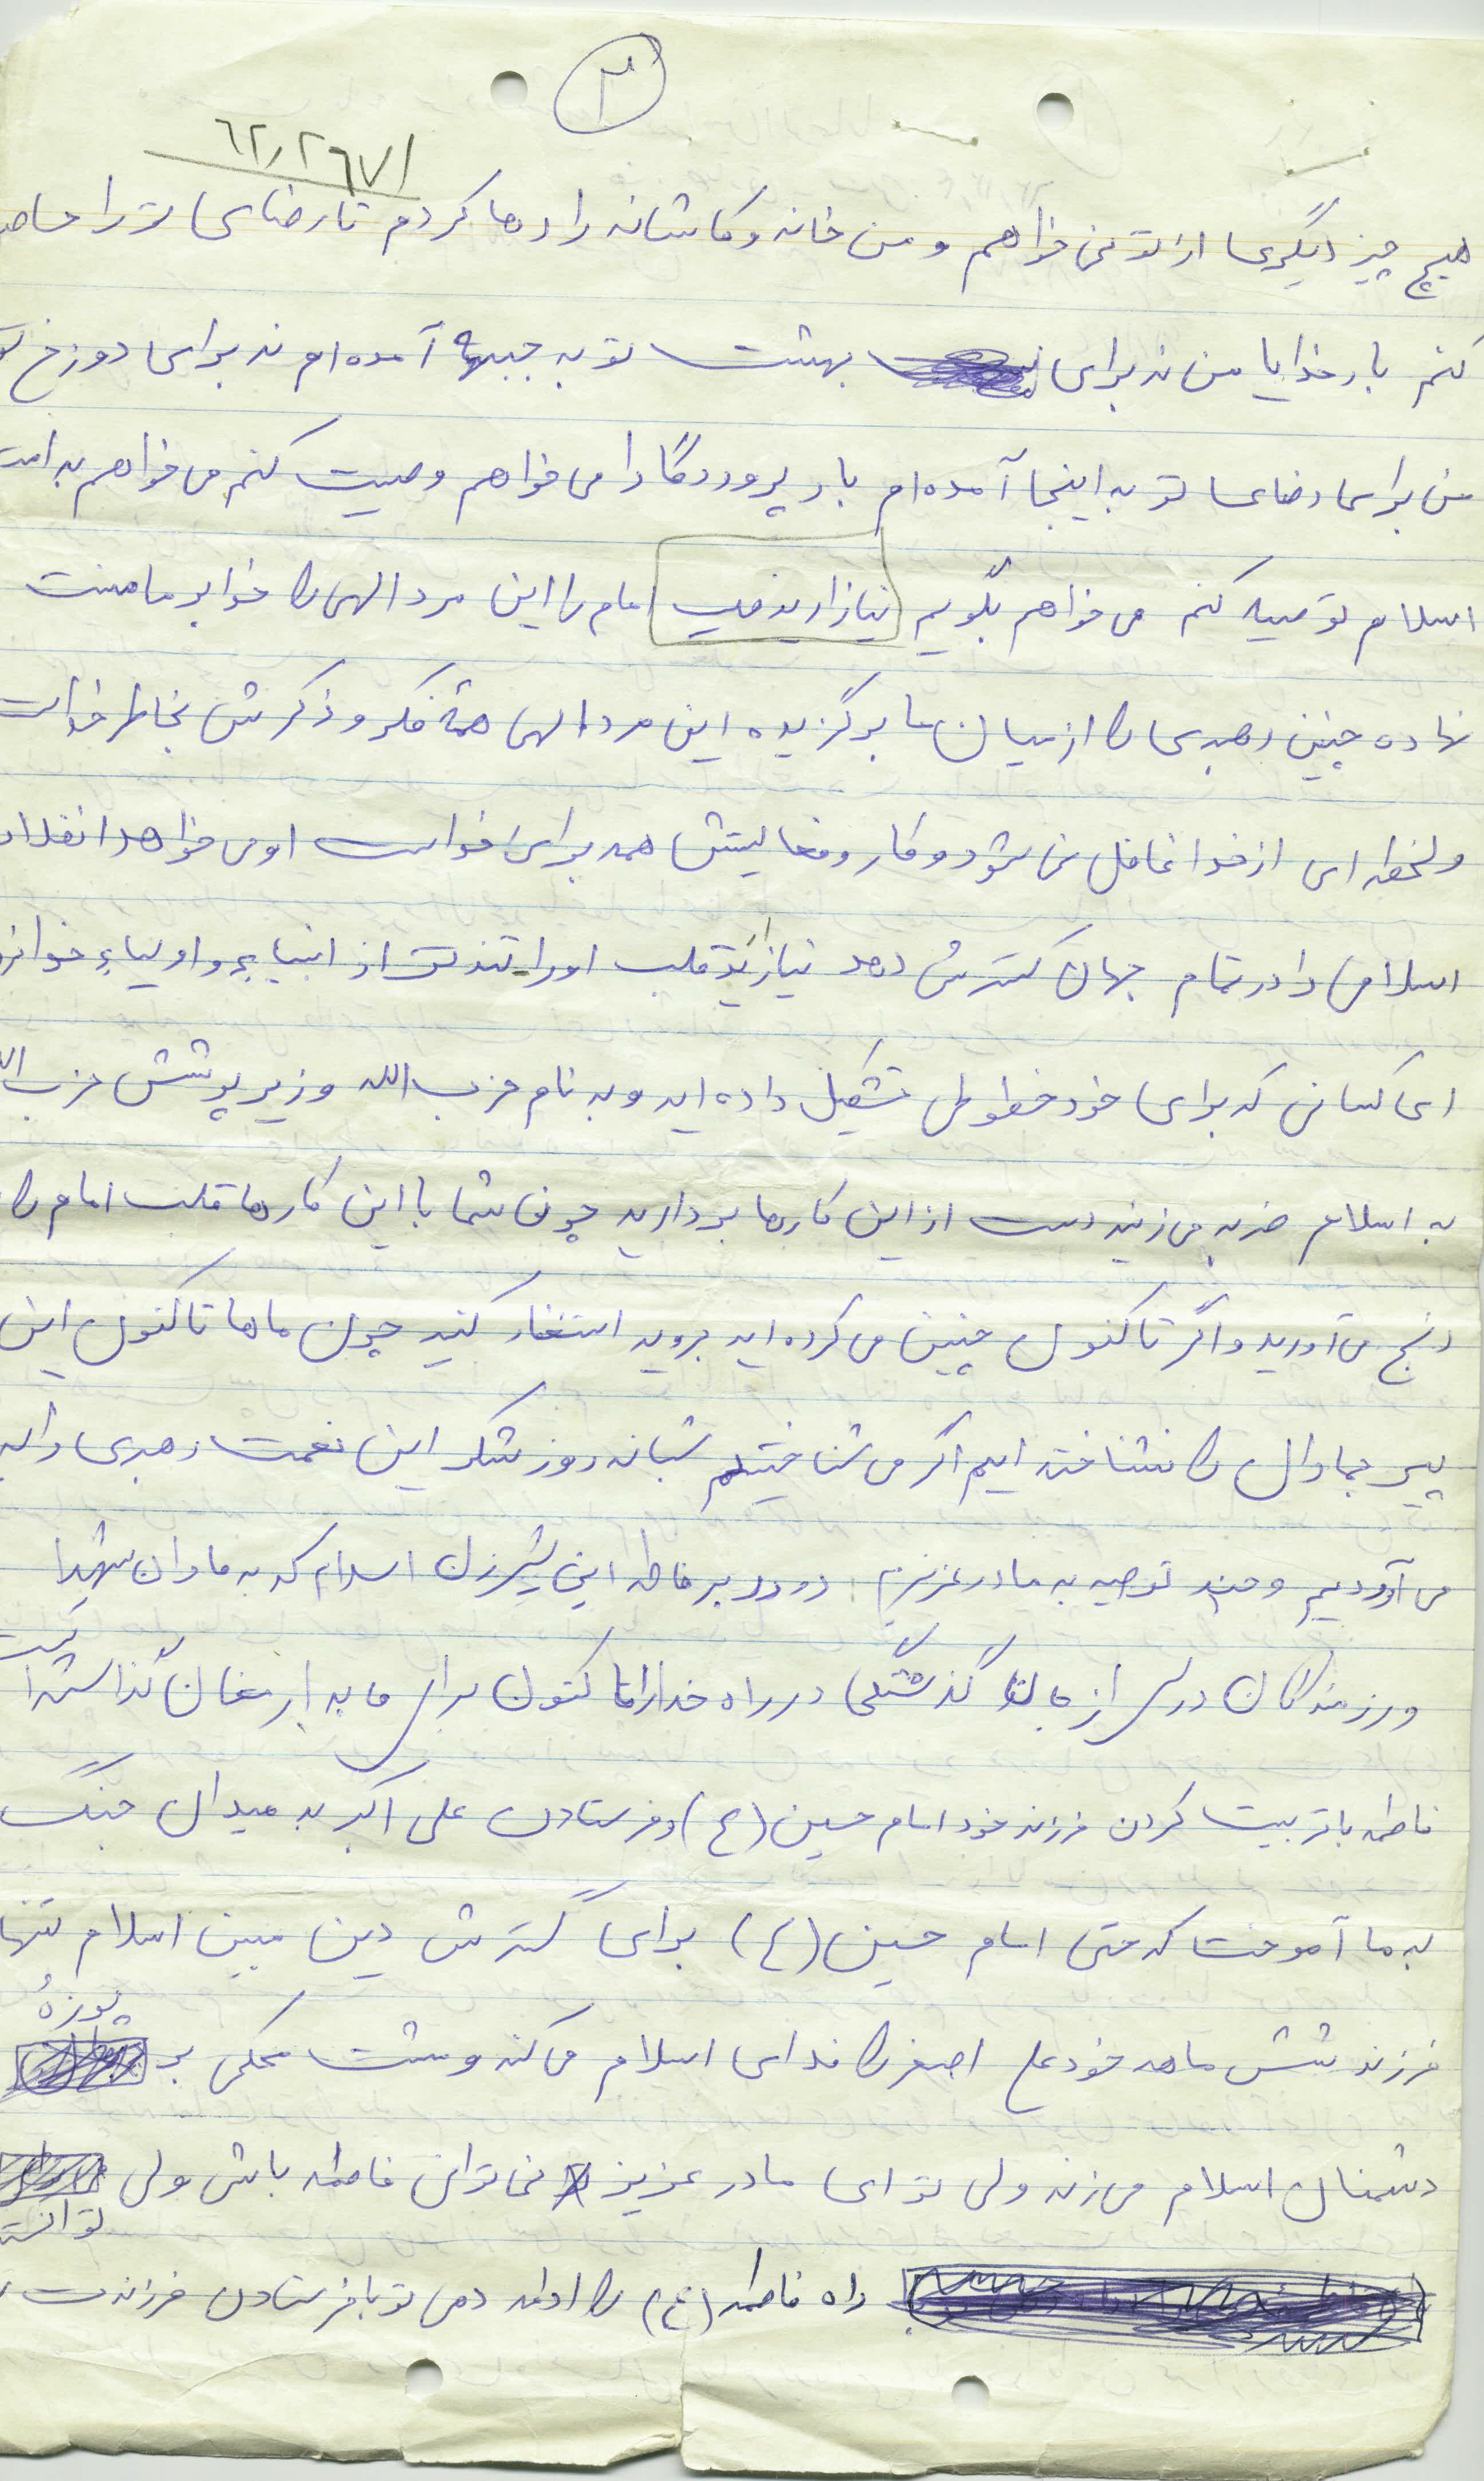 ۲
۶۲٫۲۶۷۱
هیچ چیز دیگری از تو نمی خواهم و من خانه و کاشانه را رها کردم تا رضای ترا حاصل
کنم بار خدایا من نه برای بهشت تو به جبهه آمده ام نه برای دوزخ تو
من برای رضای تو به اینجا آمده ام بار پروردگارا می خواهم وصیت کنم می خواهم به امت
اسلام توصیه کنم می خواهم بگویم نیازارید قلب امام را این مرد الهی را خدا بر ما منت
نهاده چنین رهبری را از میان ما برگزیده این مرد الهی همهٔ فکر و ذکرش بخاطر خداست
و لحظه ای از خدا غافل نمی شود و کار و فعالیتش همه برای خداست او می خواهد انقلاب
اسلامی را در تمام جهان گسترش دهد نیازارید قلب او را از انبیاء و اولیاء
ای کسانی که برای خود خطوطی تشکیل داده اید و به نام حزب الله و زیر پوشش حزب الله
به اسلام ضربه می زنید دست از این کارها بردارید چون شما با این کارها قلب امام را
رنج می آورید و اگر تاکنون چنین می کرده اید بروید استغفار کنید چون ماها تاکنون این
پیر جماران را نشناخته ایم اگر می شناختیم شبانه روز شکر این نعمت رهبری را به
می آوردیم و چند توصیه به مادر عزیزم: درود بر فاطمه این شیرزن اسلام که به مادران شهدا
و رزمندگان درس از جان گذشتگی در راه خدا را تا کنون برای ما به ارمغان گذاشته است
فاطمه با تربیت کردن فرزند خود امام حسین (ع) و فرستادن علی اکبر به میدان جنگ
به ما آموخت که حتی امام حسین (ع) برای گسترش دین مبین اسلام تنها
فرزند شش ماهه خود علی اصغر را فدای اسلام می کند و مشت محکمی بر پوزهٔ
دشمنان اسلام می زند ولی تو ای مادر عزیز نمی توانی فاطمه باشی ولی توانستی
راه فاطمه (ع) را ادامه دهی تو با فرستادن فرزندت